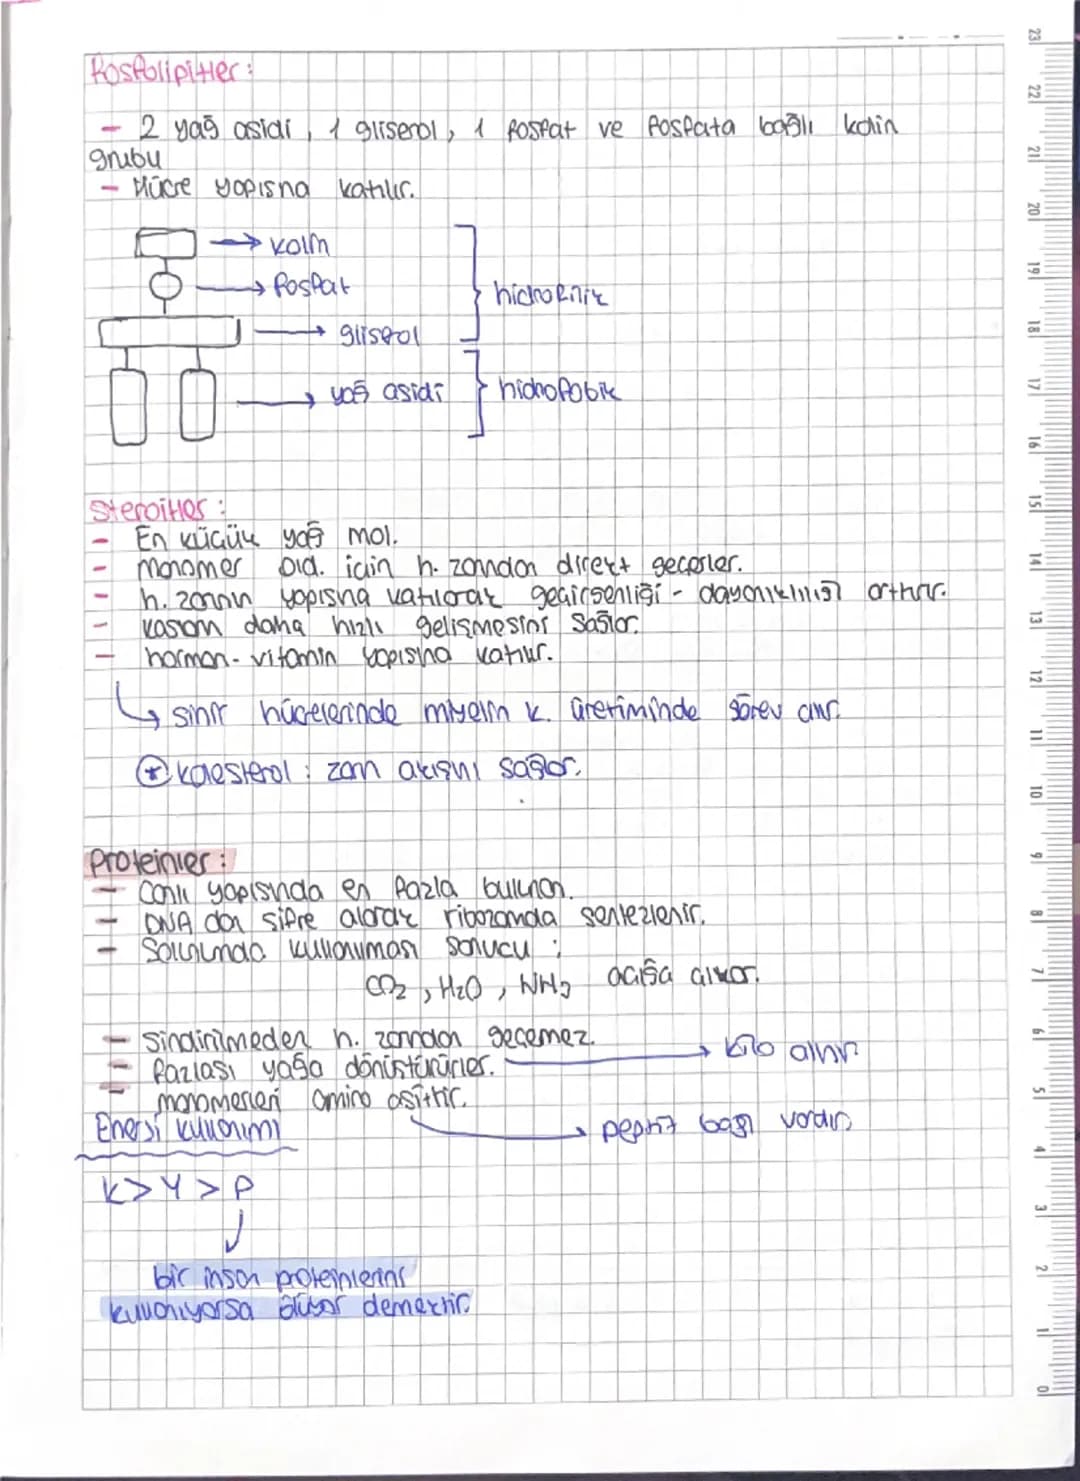 Fosfolipitler:
- 2 yağ asidi, 1 gliserol, 1 fosfat ve fosfata bağlı kolin
grubu
- Hücre yapısına katılır.
→ kolin
→ fosfat
hidrofilik
→ gliserol
→ yağ asidi
hidrofobik
Steroitler:
- En küçük yağ mol.
- monomer old. için h. zarından direkt geçerler.
- h. zarının yapısına katılarak geçirgenliği - dayanıklılığı arttırır.
- kasların daha hızlı gelişmesini sağlar.
- hormon - vitamin yapısına katılır.
↳ sinir hücrelerinde miyelin k. üretiminde görev alır.
* kolesterol: zarın akışını sağlar.
Proteinler:
- Canlı yapısında en fazla bulunan.
- DNA dan şifre alarak ribozomda sentezlenir.
- Solunumda kullanılması sonucu;
CO2, H2O, NH3 açığa çıkar.
- Sindirilmeden h. zarından geçemez.
- fazlası yağa dönüştürürler. → kilo alınır
- monomerleri amino asittir. → peptit bağı vardır
Enerji kullanımı
K > Y > P
bir insan proteinlerini
kullanıyorsa ölüyor demektir.
23 22 21 20 19 18 17 16 15 14 13 12 11 10 9 8 7 6 5 4 3 2 1 0